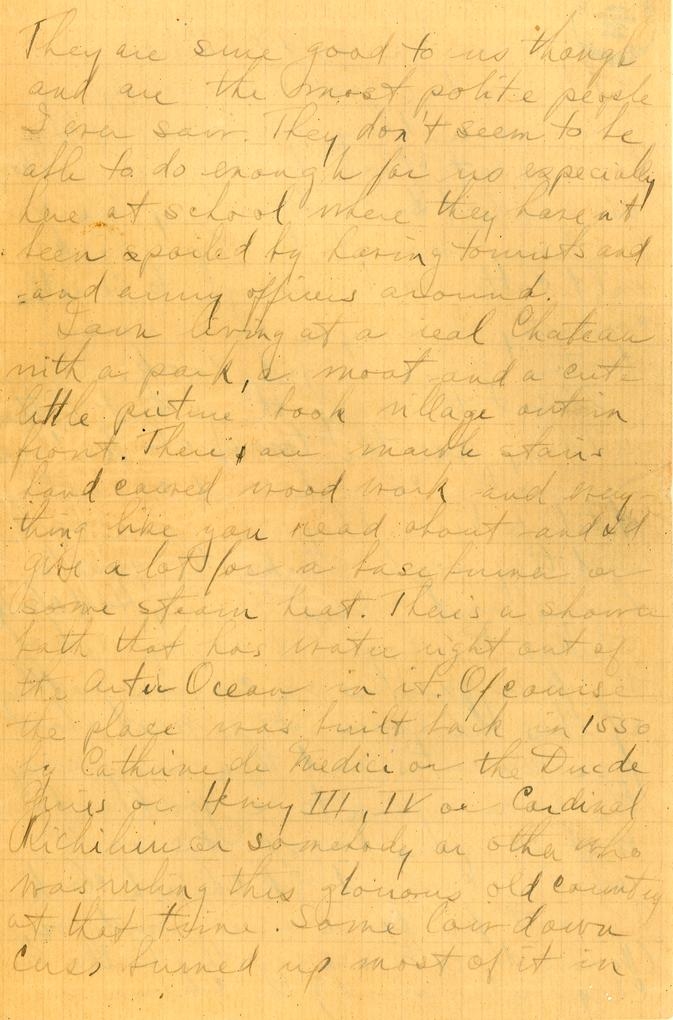 They are sure good to us though
and are the most polite people
I ever saw. They don't seem to be
able to do enough for us especially
here at school where they haven't
been spoiled by having tourists and
and army officers around.
I am living at a real Chateau
with a park, a moat and a cute
little picture book village out in
front. There are marble stairs
hand carved wood work and every-
thing like you read about and I'd
give a lot for a base burner or
some steam heat. There's a shower
bath that has water right out of
the Artic Ocean in it. Of course
the place was built back in 1550
by Catherine de Medici or the Duc de
Guies or Henry III, IV or Cardinal
Richilieu or somebody or other who
was ruling this glorious old country
at that time. Some low down
cuss burned up most of it in